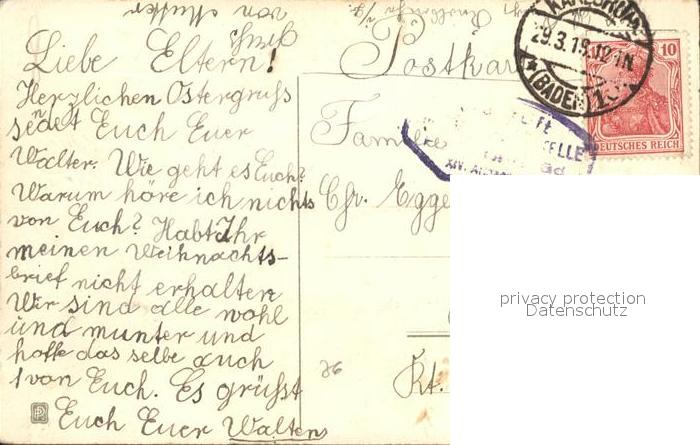 Liebe Eltern!
Herzlichen Ostergruss
sendet Euch Euer
Walter. Wie geht es Euch?
Warum höre ich nichts
von Euch? Habt Ihr
meinen Weihnachts-
brief nicht erhalten
Wir sind alle wohl
und munter und
hoffe das selbe auch
von Euch. Es grüsst
Euch Euer Walter
von Mutter
Postkar
Familie
Chr. Egge
Kt.
26
29.3.19.12-1N
(BADEN)
10
DEUTSCHES REICH
ELLE
XIV.
privacy protection
Datenschutz